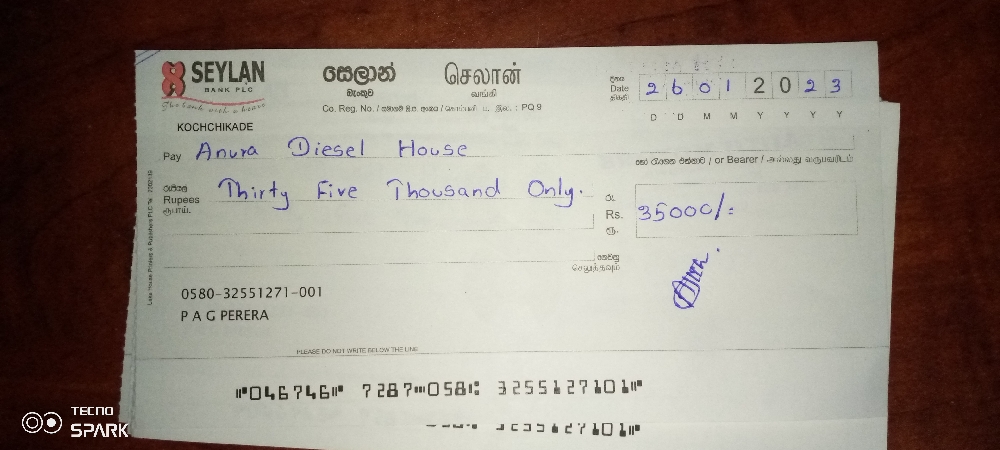 SEYLAN
BANK PLC
The bank with a heart
සෙලාන්
බැංකුව
செலான்
வங்கி
දිනය
Date
திகதி
26012023
D D M M Y Y Y Y
KOCHCHIKADE
Pay Anura Diesel House
හෝ රැගෙන එන්නාට / or Bearer / அல்லது வருபவரிடம்
රුපියල්
Rupees
ரூபாய்
Thirty Five Thousand Only.
රු.
Rs.
ரூ.
35000/=
ගෙවනු
செலுத்தவும்
0580-32551271-001
P A G PERERA
PLEASE DO NOT WRITE BELOW THE LINE
⑈046746⑈ 7287⑉058⑆ 3255127101⑈
TECNO
SPARK